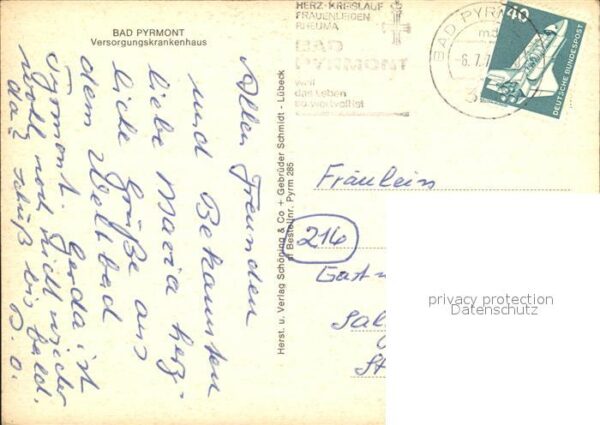 BAD PYRMONT
Versorgungskrankenhaus
Allen Freunden
und Bekannten
liebe Maria herz-
liche Grüße aus
dem Weltbad
Pyrmont. Gerda ist
wohl noch nicht wieder
da? Tschüß bis bald.
Herst. u. Verlag Schöning & Co + Gebrüder Schmidt - Lübeck
Bestellnr. Pyrm 285
HERZ-KREISLAUF
FRAUENLEIDEN
RHEUMA
BAD
PYRMONT
weil
das Leben
so wertvoll ist
BAD PYRM
-6.7.7
3
40
DEUTSCHE BUNDESPOST
Fräulein
214
Gast
Sal
St
privacy protection
Datenschutz